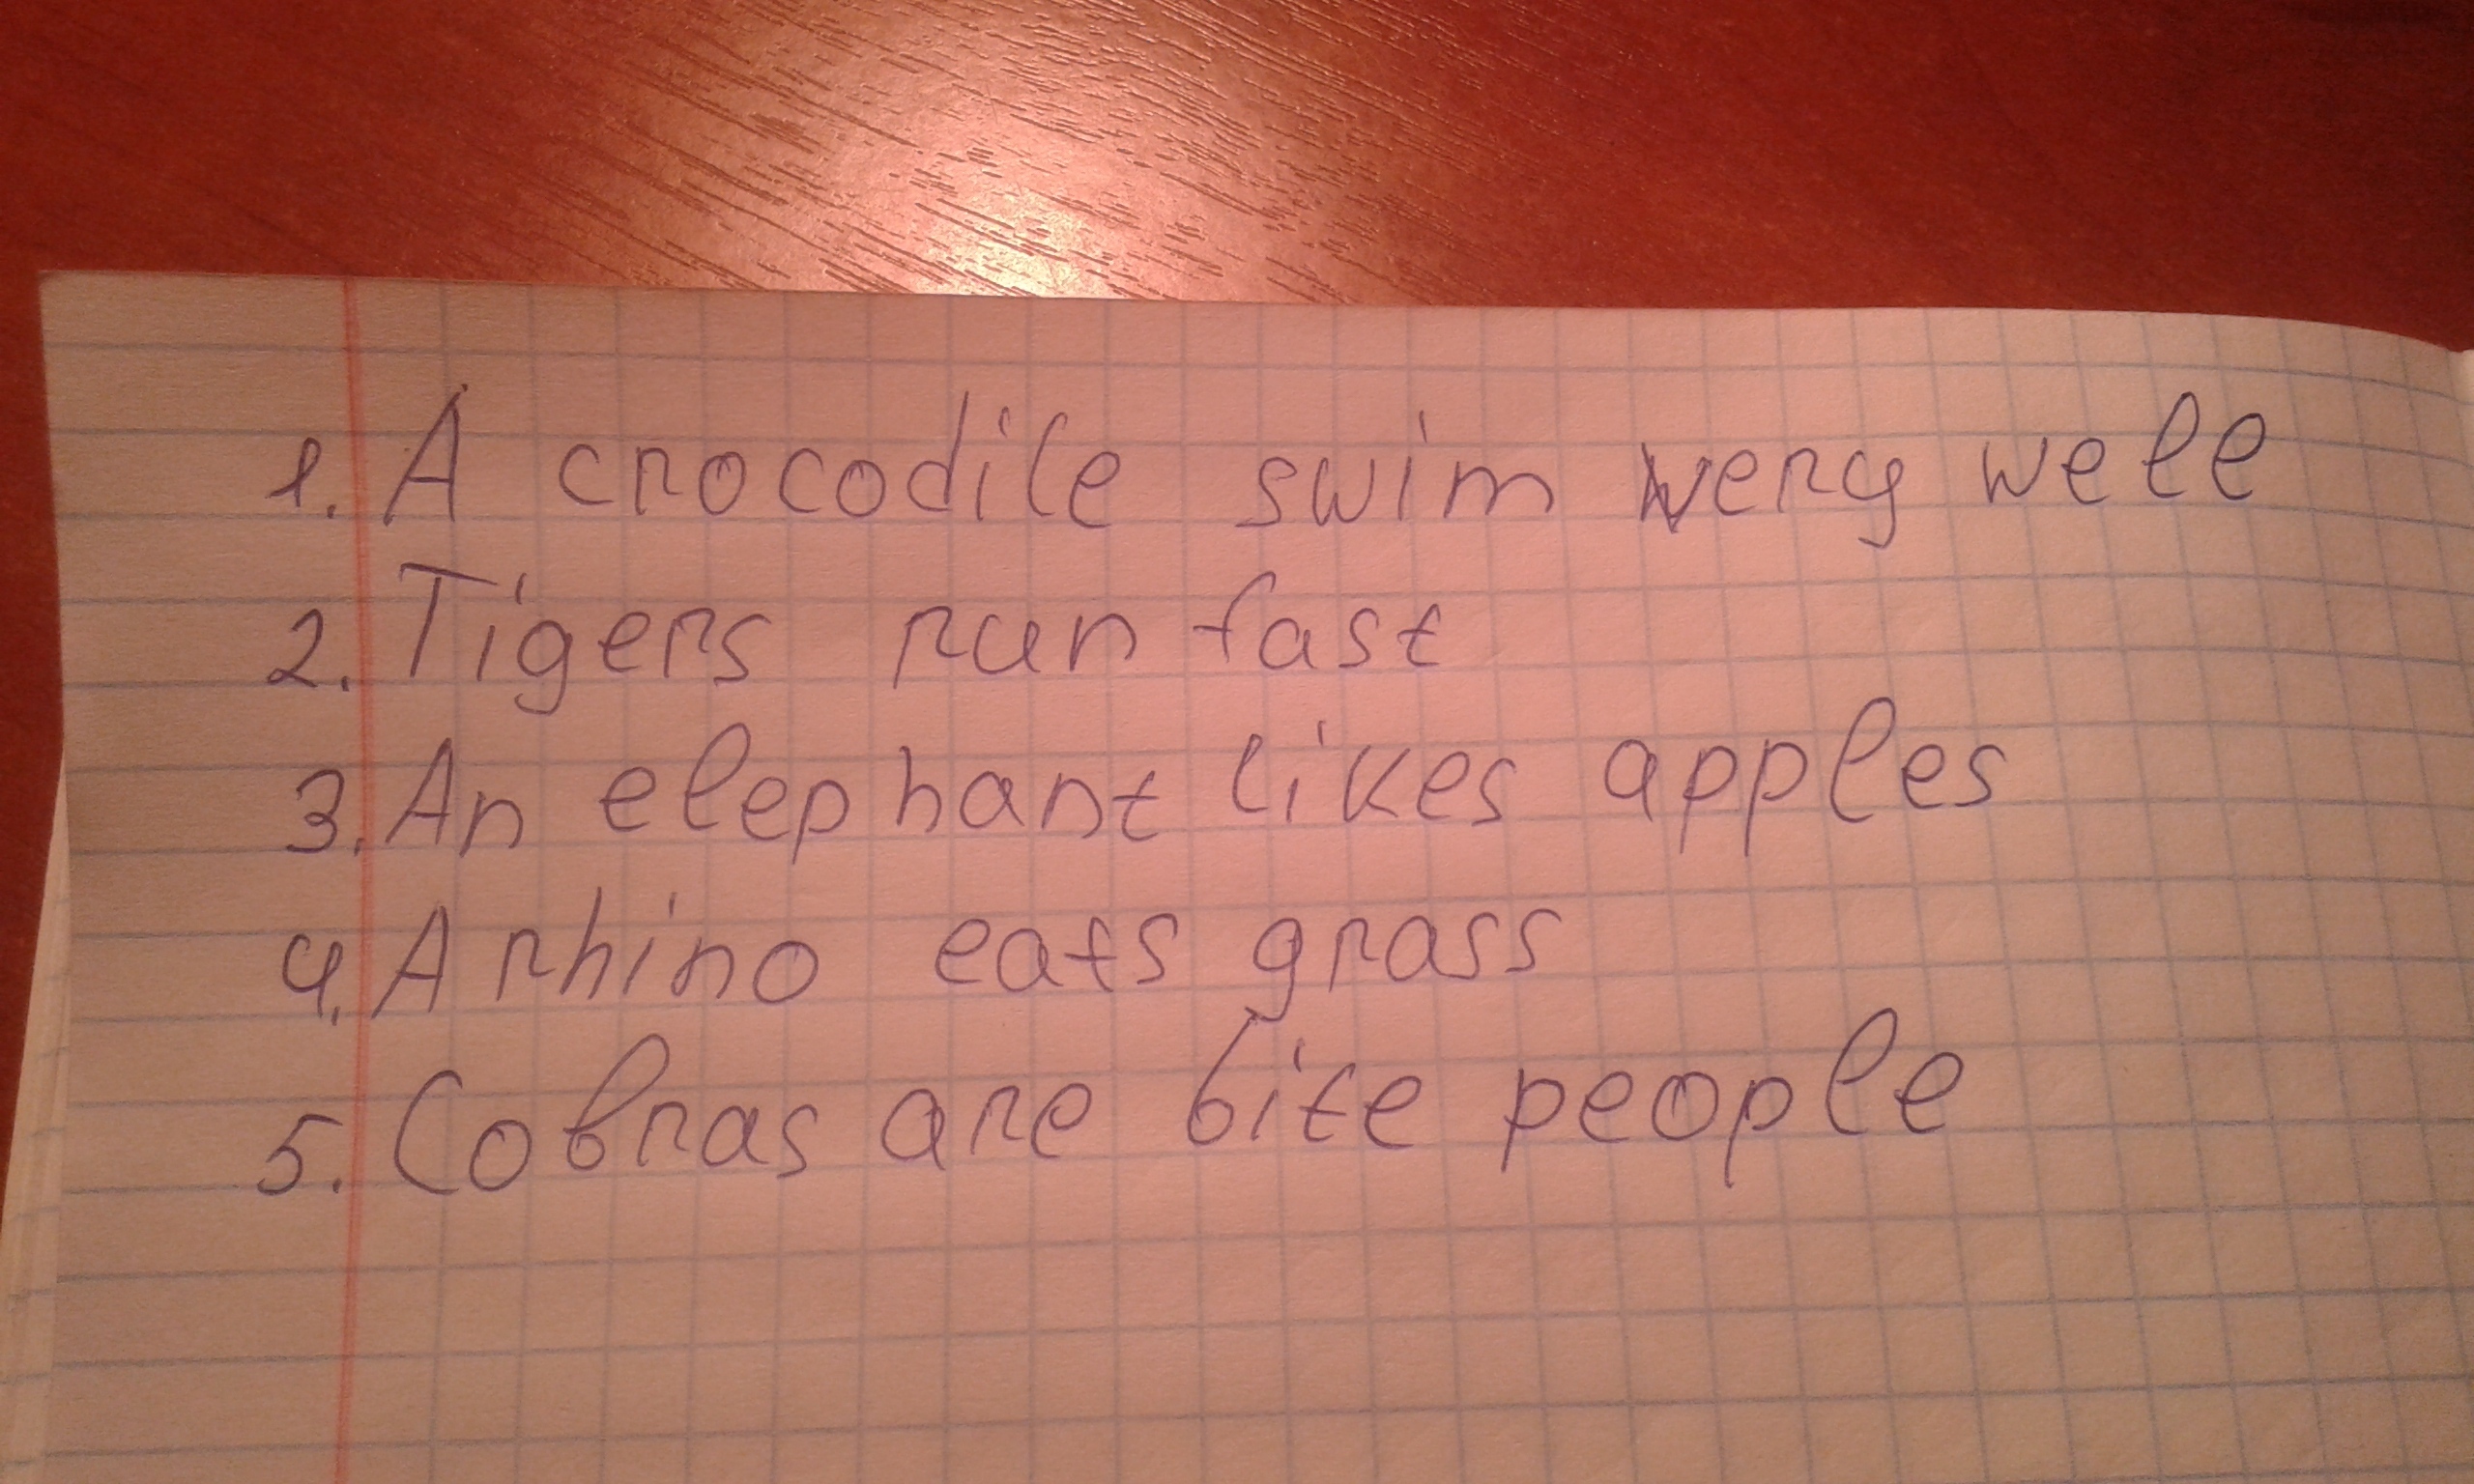 1. A crocodile swim very well
2. Tigers run fast
3. An elephant likes apples
4. A rhino eats grass
5. Cobras are bite people